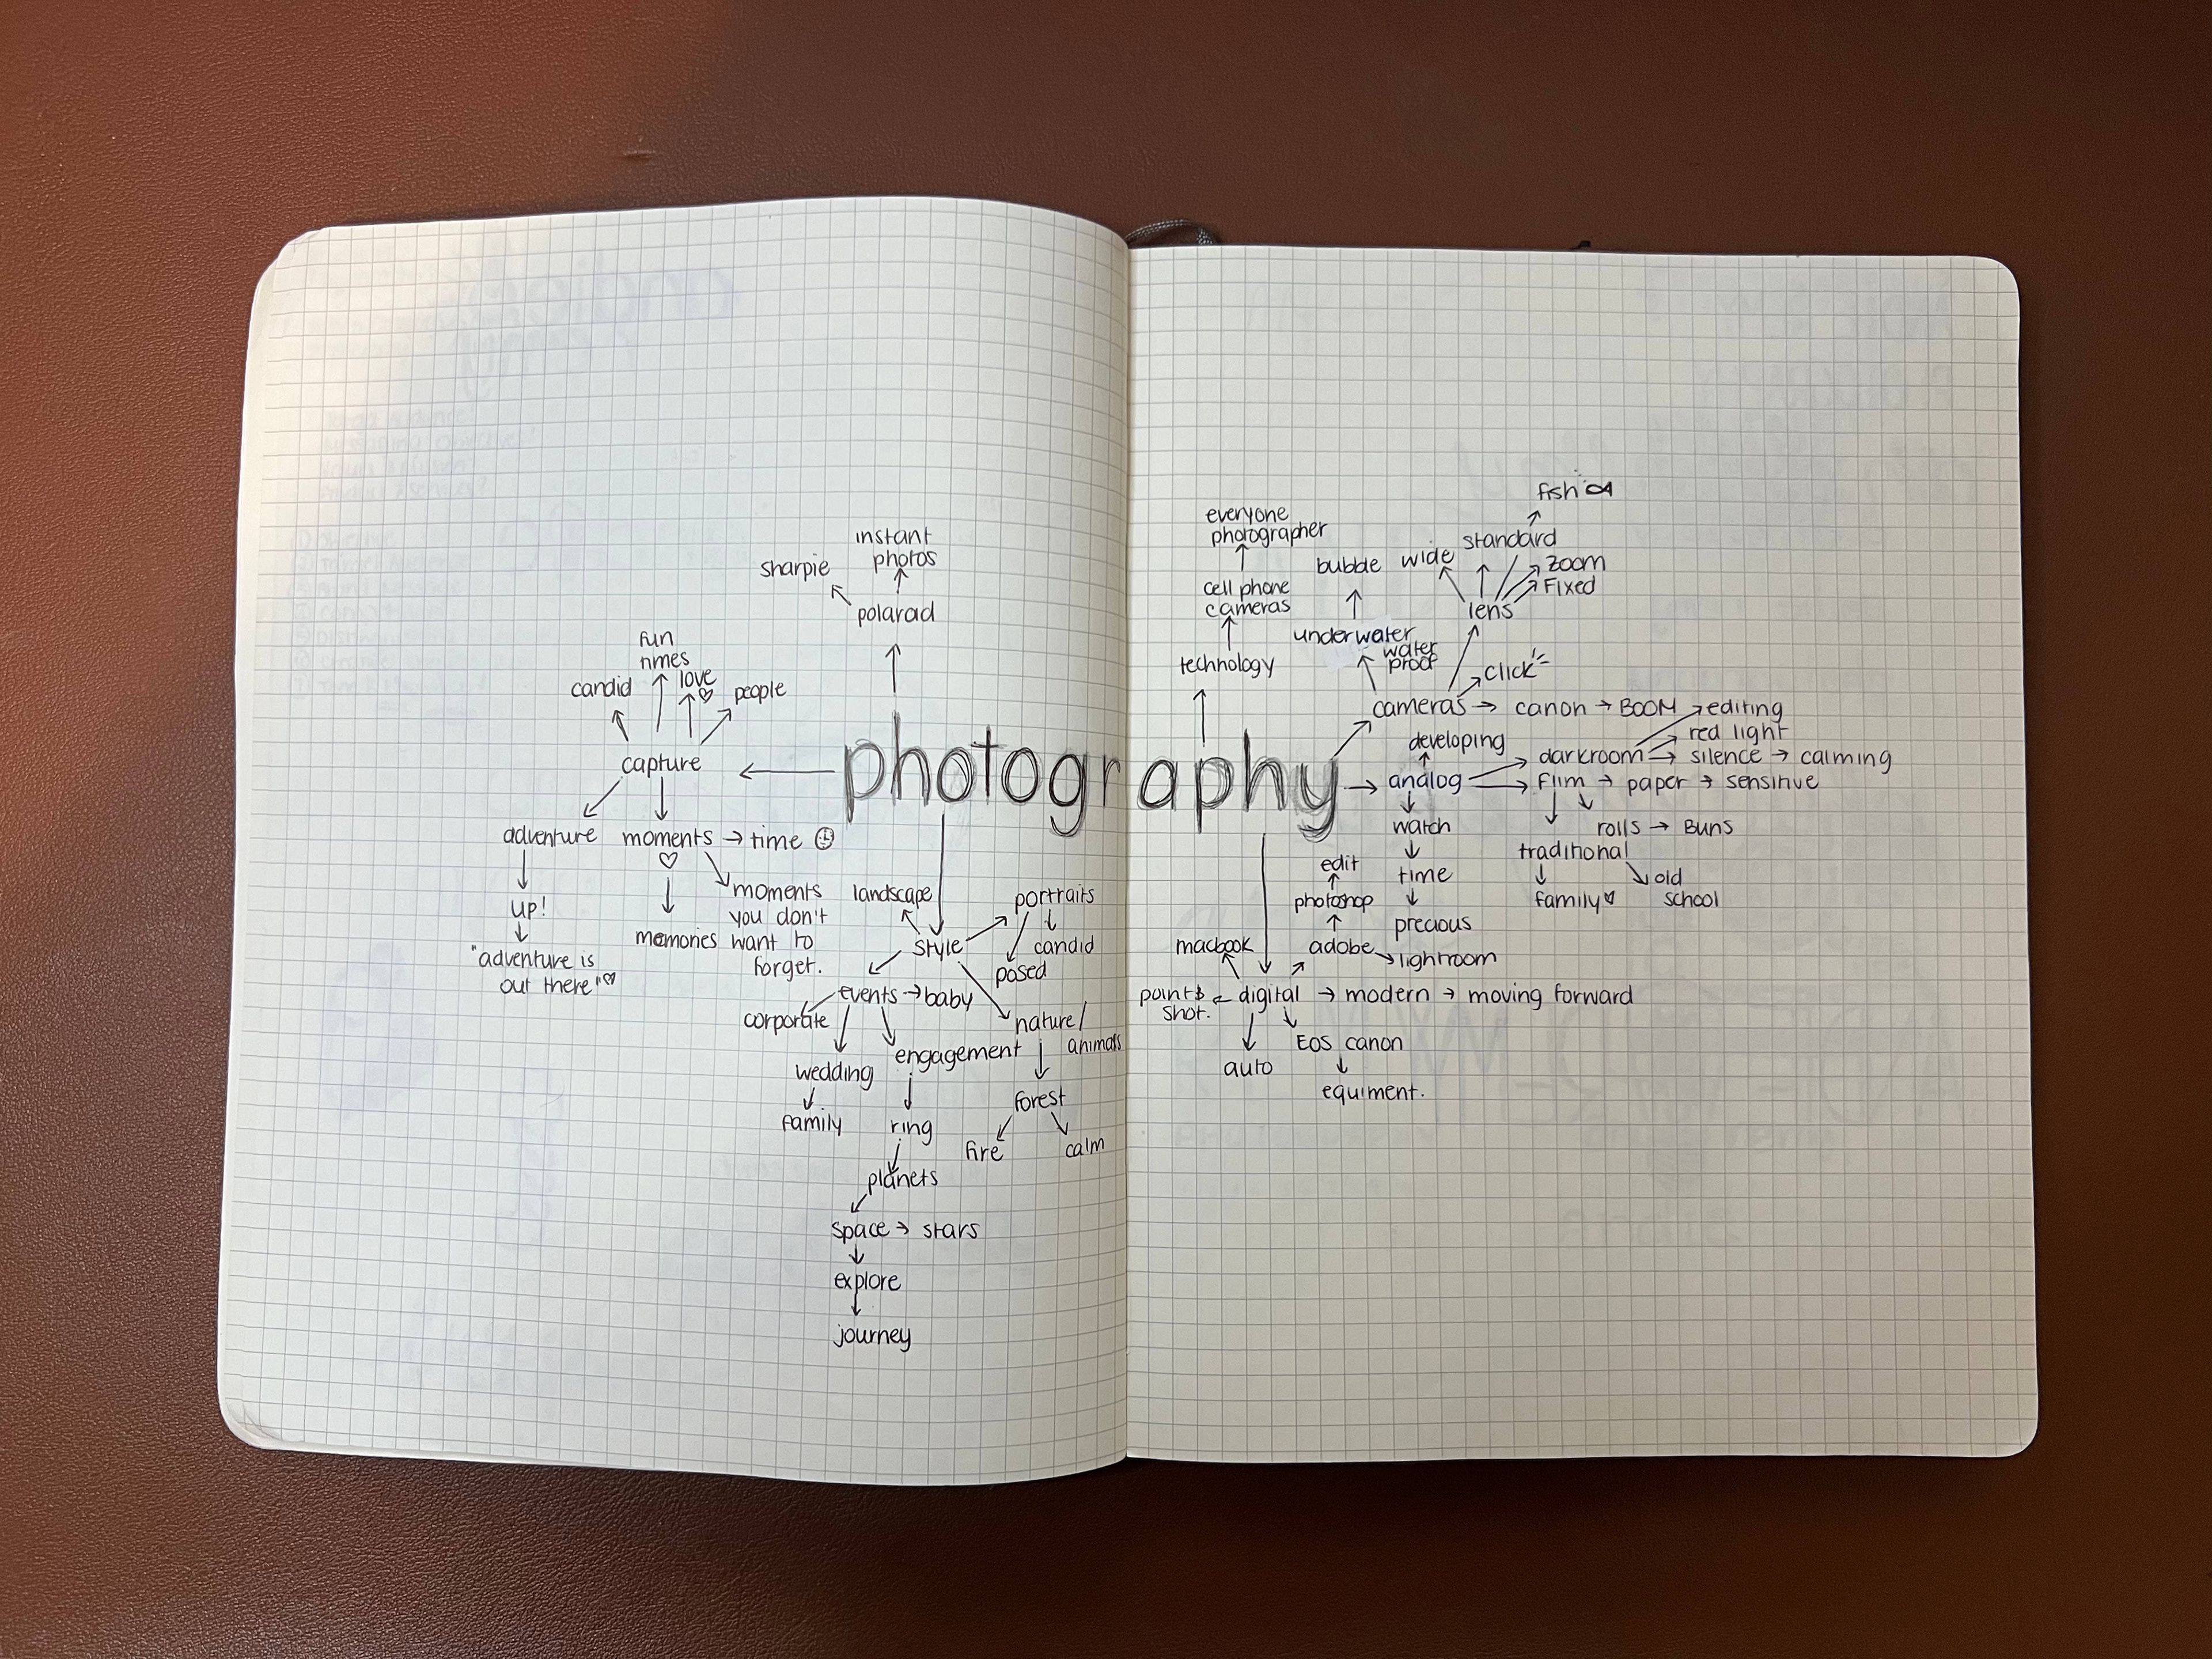 instant
photos
sharpie
polarad
fun
times
love
candid
people
capture
photography
adventure
moments
time
up!
memories
moments
you don't
want to
forget.
"adventure is
out there"
landscape
portraits
style
candid
posed
events
baby
corporate
nature/
animals
engagement
wedding
family
ring
forest
fire
calm
planets
space
stars
explore
journey
everyone
photographer
cell phone
cameras
technology
bubble
underwater
water
proof
wide
standard
fish
zoom
Fixed
lens
click
cameras
canon
BOOM
editing
red light
developing
darkroom
silence
calming
analog
flim
paper
sensitive
rolls
Buns
traditional
family
old
school
watch
time
precious
edit
photoshop
adobe
lightroom
macbook
point &
shot.
digital
modern
moving forward
auto
EOS canon
equiment.